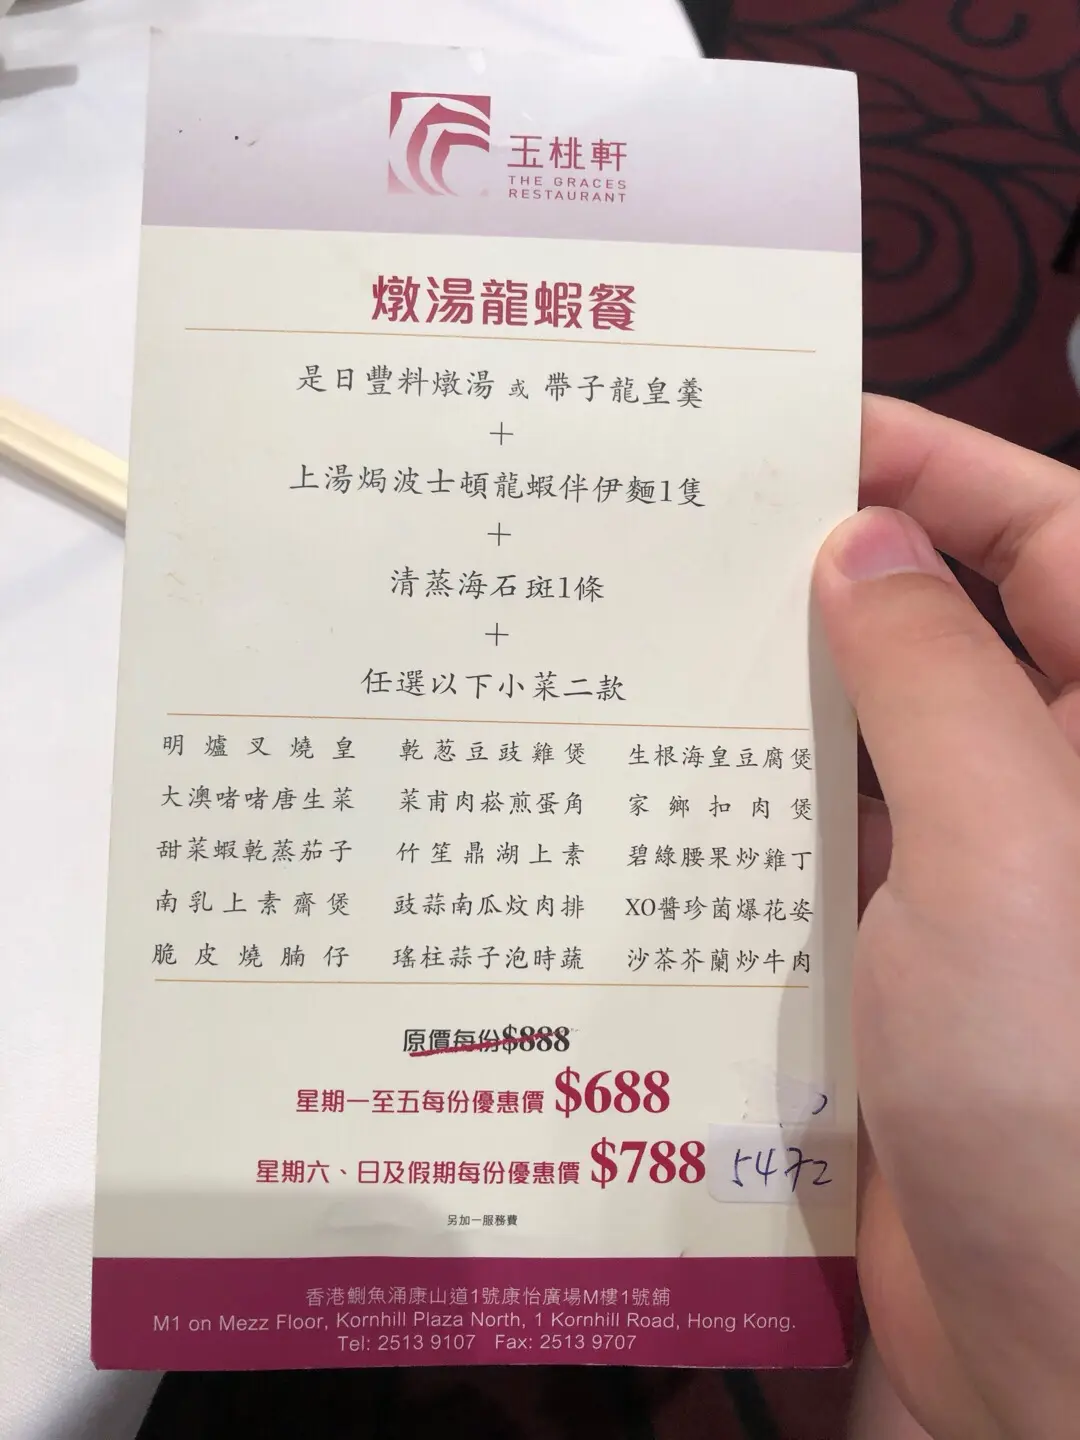 玉桃軒
THE GRACES
RESTAURANT
燉湯龍蝦餐
是日豐料燉湯 或 帶子龍皇羹
+
上湯焗波士頓龍蝦伴伊麵1隻
+
清蒸海石斑1條
+
任選以下小菜二款
明爐叉燒皇 乾葱豆豉雞煲 生根海皇豆腐煲
大澳啫啫唐生菜 菜甫肉崧煎蛋角 家鄉扣肉煲
甜菜蝦乾蒸茄子 竹笙鼎湖上素 碧綠腰果炒雞丁
南乳上素齋煲 豉蒜南瓜炆肉排 XO醬珍菌爆花姿
脆皮燒腩仔 瑤柱蒜子泡時蔬 沙茶芥蘭炒牛肉
原價每份$888
星期一至五每份優惠價 $688
星期六、日及假期每份優惠價 $788
5472
另加一服務費
香港鰂魚涌康山道1號康怡廣場M樓1號舖
M1 on Mezz Floor, Kornhill Plaza North, 1 Kornhill Road, Hong Kong.
Tel: 2513 9107 Fax: 2513 9707